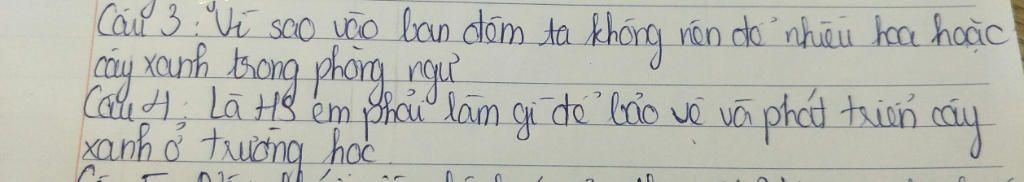 Câu 3: Vì sao vào ban đêm ta không nên để nhiều hoa hoặc
cây xanh trong phòng ngủ
Câu 4: Là HS em phải làm gì để bảo vệ và phát triển cây
xanh ở trường học